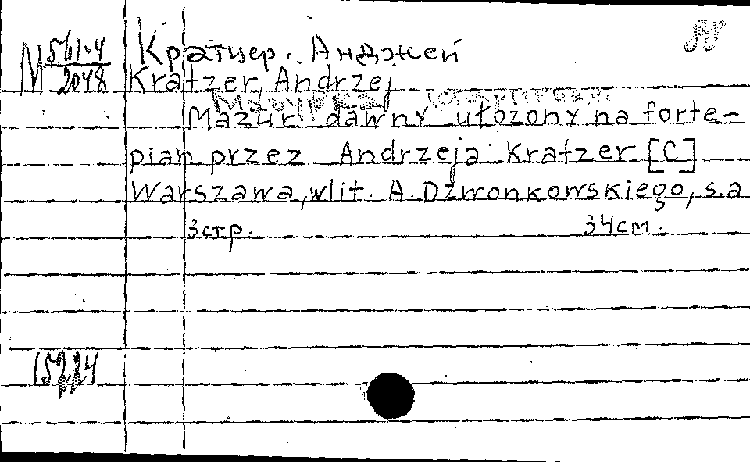 М 561-4
2048
Кратцер. Анджей
Kratzer, Andrzej
Mazur dawny ułozony na forte-
pian przez Andrzeja Kratzer [C]
Warszawa, w lit. A. Dzwonkowskiego, s.a
3стр. 34см.